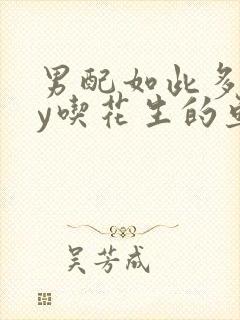 男配如此多
y喫花生的
吴芳成